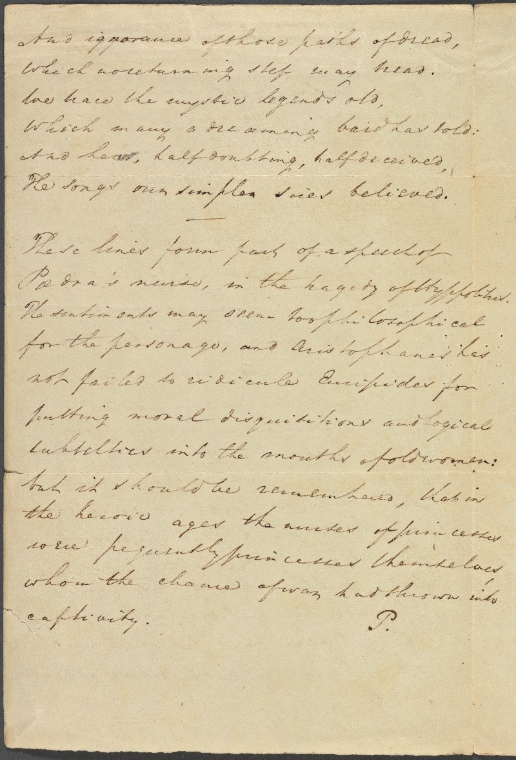 And ignorance of those paths of dread,
Which no returning step may tread.
We trace the mystic legends old,
Which many a dreaming bard has told:
And hear, half doubting, half deceived,
The songs our simpler sires believed.
These lines form part of a speech of
Pædra's nurse, in the tragedy of Hyppolitus.
The sentiments may seem too philosophical
for the personage, and Aristophanes has
not failed to ridicule Euripides for
putting moral disquisitions and logical
subtelties into the mouths of old women:
but it should be remembered, that in
the heroic ages the nurses of princesses
were frequently princesses themselves,
whom the chance of war had thrown into
captivity. P.